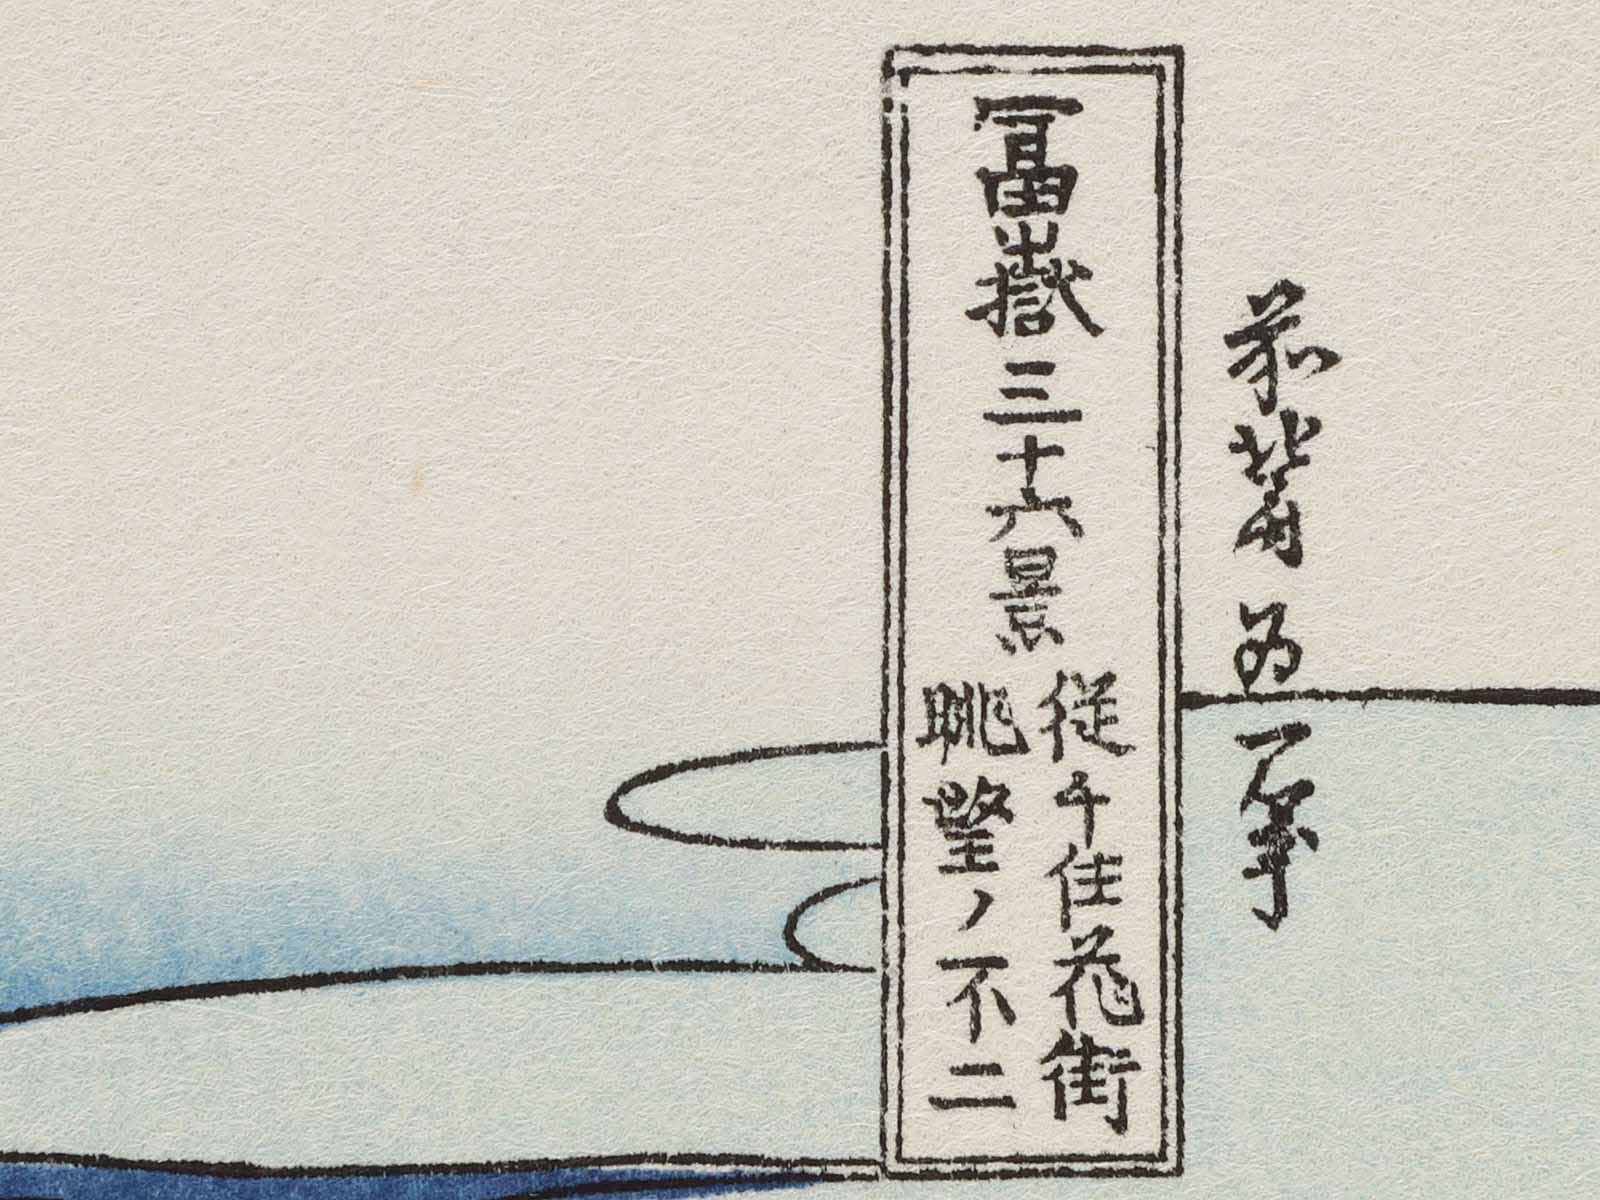 前北斎為一筆
冨嶽三十六景
従千住花街
眺望ノ不二